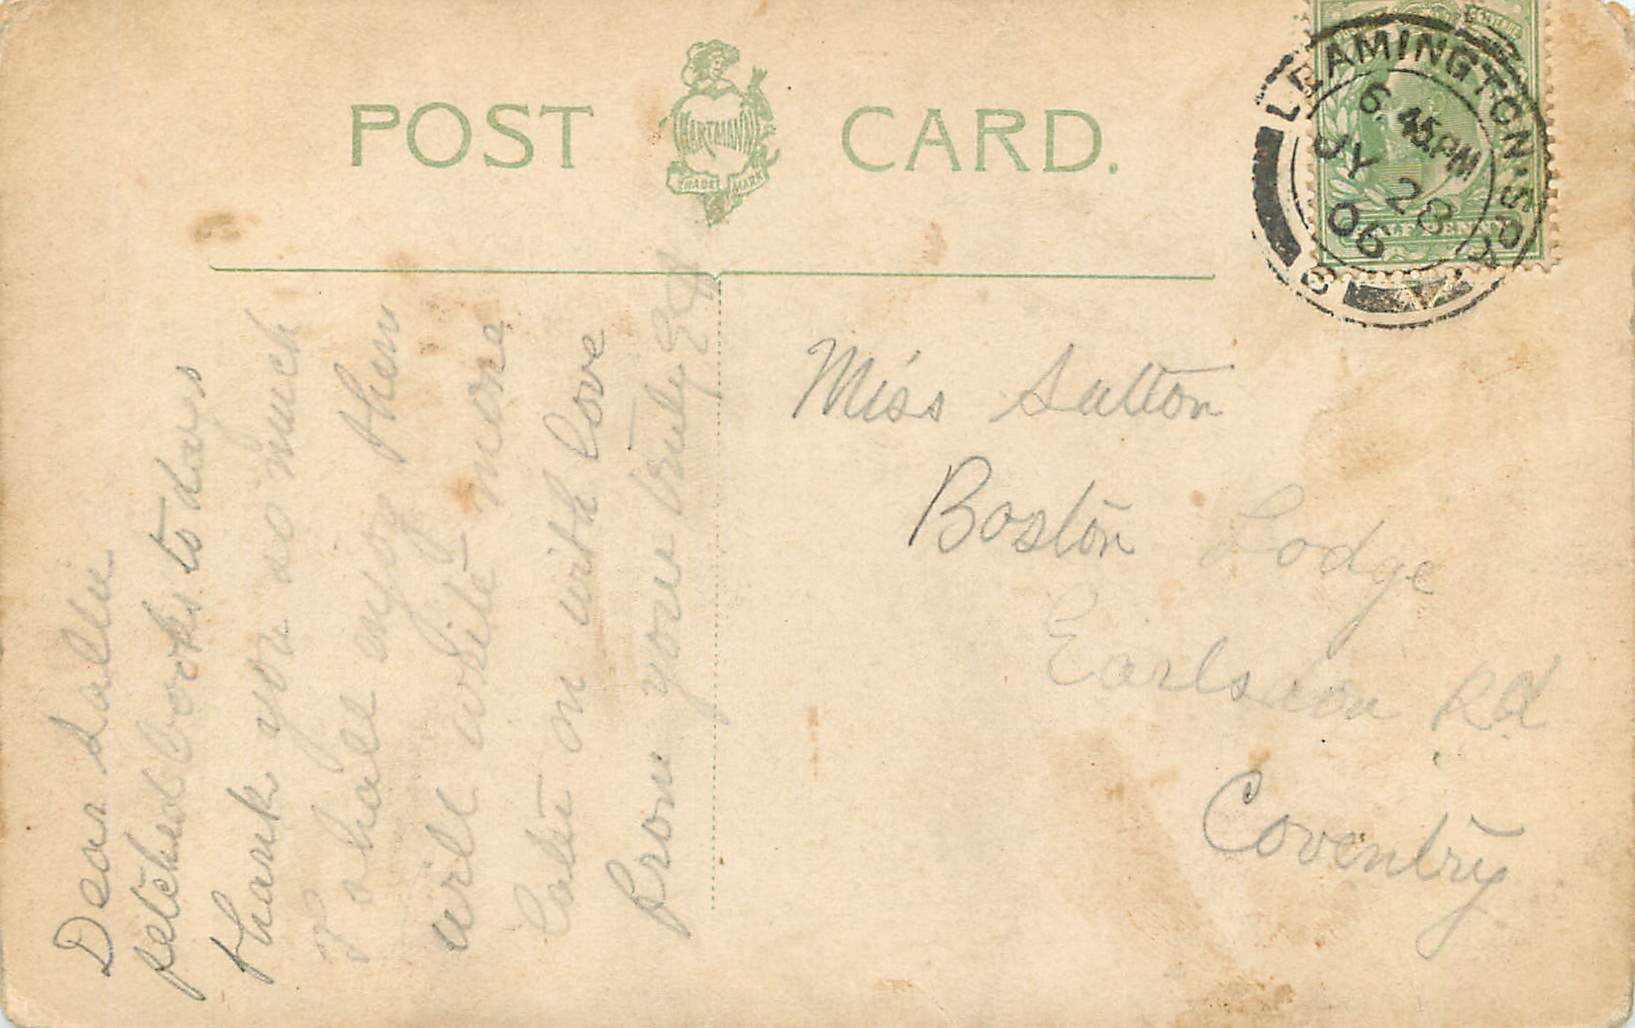 POST CARD.
HARTMANN
TRADE MARK
LEAMINGTON·SPA
6.45.PM
JY 28
06
HALF PENNY
Miss Sutton
Boston Lodge
Earlsdon Rd
Coventry
Dear Sallie
fetched books to days
thank you so much
I shall enjoy them
will write more
later on with love
from your truly